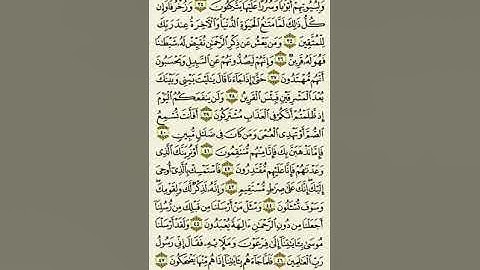 وَلِبُيُوتِهِمْ أَبْوَٰبًا وَسُرُرًا عَلَيْهَا يَتَّكِـُٔونَ ٣٤ وَزُخْرُفًا وَإِن
كُلُّ ذَٰلِكَ لَمَّا مَتَٰعُ ٱلْحَيَوٰةِ ٱلدُّنْيَا وَٱلْـَٔاخِرَةُ عِندَ رَبِّكَ
لِلْمُتَّقِينَ ٣٥ وَمَن يَعْشُ عَن ذِكْرِ ٱلرَّحْمَٰنِ نُقَيِّضْ لَهُۥ شَيْطَٰنًا
فَهُوَ لَهُۥ قَرِينٌ ٣٦ وَإِنَّهُمْ لَيَصُدُّونَهُمْ عَنِ ٱلسَّبِيلِ وَيَحْسَبُونَ
أَنَّهُم مُّهْتَدُونَ ٣٧ حَتَّىٰٓ إِذَا جَآءَنَا قَالَ يَٰلَيْتَ بَيْنِى وَبَيْنَكَ
بُعْدَ ٱلْمَشْرِقَيْنِ فَبِئْسَ ٱلْقَرِينُ ٣٨ وَلَن يَنفَعَكُمُ ٱلْيَوْمَ
إِذ ظَّلَمْتُمْ أَنَّكُمْ فِى ٱلْعَذَابِ مُشْتَرِكُونَ ٣٩ أَفَأَنتَ تُسْمِعُ
ٱلصُّمَّ أَوْ تَهْدِى ٱلْعُمْىَ وَمَن كَانَ فِى ضَلَٰلٍ مُّبِينٍ ٤٠
فَإِمَّا نَذْهَبَنَّ بِكَ فَإِنَّا مِنْهُم مُّنتَقِمُونَ ٤١ أَوْ نُرِيَنَّكَ ٱلَّذِى
وَعَدْنَٰهُمْ فَإِنَّا عَلَيْهِم مُّقْتَدِرُونَ ٤٢ فَٱسْتَمْسِكْ بِٱلَّذِىٓ أُوحِىَ
إِلَيْكَ إِنَّكَ عَلَىٰ صِرَٰطٍ مُّسْتَقِيمٍ ٤٣ وَإِنَّهُۥ لَذِكْرٌ لَّكَ وَلِقَوْمِكَ
وَسَوْفَ تُسْـَٔلُونَ ٤٤ وَسْـَٔلْ مَنْ أَرْسَلْنَا مِن قَبْلِكَ مِن رُّسُلِنَآ
أَجَعَلْنَا مِن دُونِ ٱلرَّحْمَٰنِ ءَالِهَةً يُعْبَدُونَ ٤٥ وَلَقَدْ أَرْسَلْنَا
مُوسَىٰ بِـَٔايَٰتِنَآ إِلَىٰ فِرْعَوْنَ وَمَلَإِيْهِۦ فَقَالَ إِنِّى رَسُولُ
رَبِّ ٱلْعَٰلَمِينَ ٤٦ فَلَمَّا جَآءَهُم بِـَٔايَٰتِنَآ إِذَا هُم مِّنْهَا يَضْحَكُونَ ٤٧